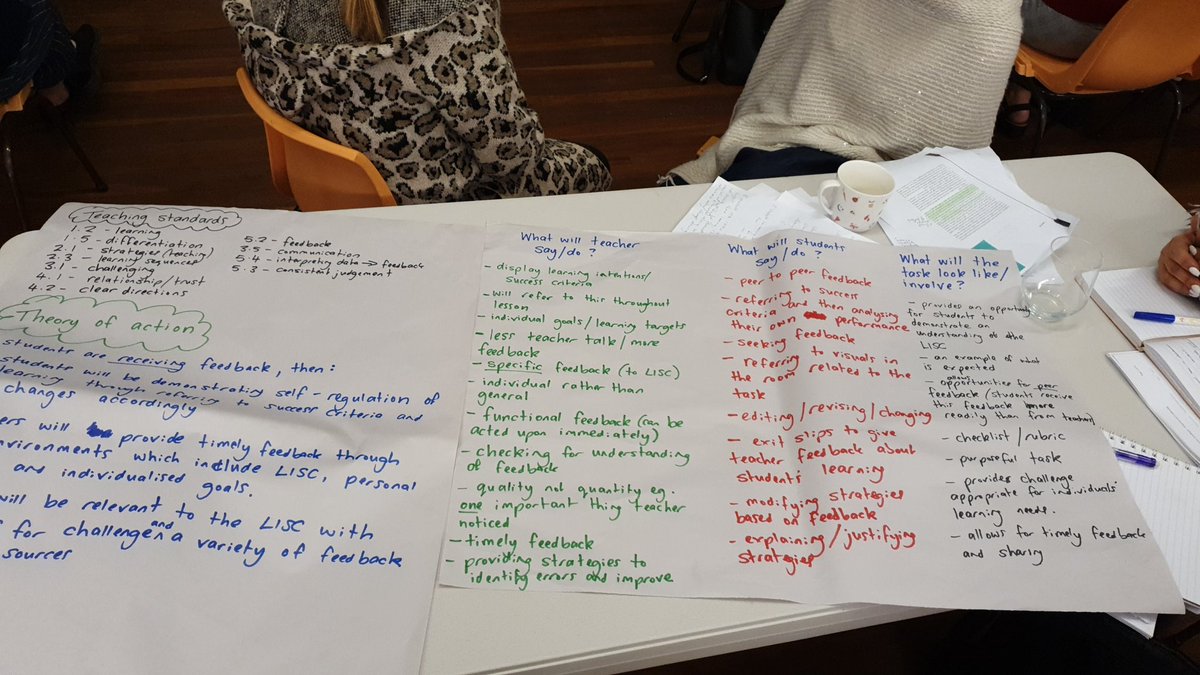 Teaching standards
1.2 - learning
1.5 - differentiation
2.1 - strategies (teaching)
2.3 - learning sequences
3.1 - challenging
4.1 - relationship/trust
4.2 - clear directions
5.2 - feedback
3.5 - communication
5.4 - interpreting data → feedback
5.3 - consistent judgement
Theory of action
students are receiving feedback, then:
students will be demonstrating self-regulation of
learning through referring to success criteria and
changes accordingly
ers will provide timely feedback through
vironments which include LISC, personal
and individualised goals.
will be relevant to the LISC with
for challenge and a variety of feedback
sources
What will teacher
say/do?
- display learning intentions/
success criteria
- will refer to this throughout
lesson
- individual goals/learning targets
- less teacher talk/more
feedback
- specific feedback (to LISC)
- individual rather than
general
- functional feedback (can be
acted upon immediately)
- checking for understanding
of feedback
- quality not quantity eg.
one important thing teacher
noticed
- timely feedback
- providing strategies to
identify errors and improve
What will students
say/do?
- peer to peer feedback
- referring to success
criteria and then analysing
their own performance
- seeking feedback
- referring to visuals in
the room related to the
task
- editing/revising/changing
- exit slips to give
teacher feedback about
students' learning
- modifying strategies
based on feedback
- explaining/justifying
strategies
What will the
task look like/
involve?
- provides an opportunity
for students to
demonstrate an
understanding of the
LISC
- an example of what
is expected
- opportunities for peer
feedback (students receive
this feedback more
readily than from teacher)
- checklist/rubric
- purposeful task
- provides challenge
appropriate for individuals'
learning needs.
- allows for timely feedback
and sharing